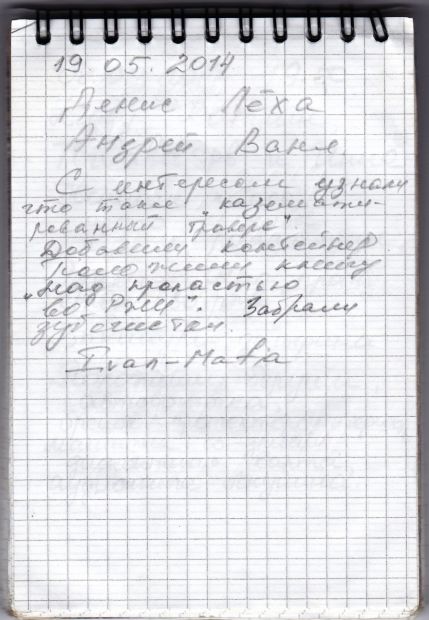 19.05.2014
Денис Лёха
Андрей Ваня
С интересом узнали
что такое "каземати-
рованный траверс".
Добавили контейнер.
Положили книгу
"Над пропастью
во Ржи". Забрали
зубочистки.
Ivan-Mafia